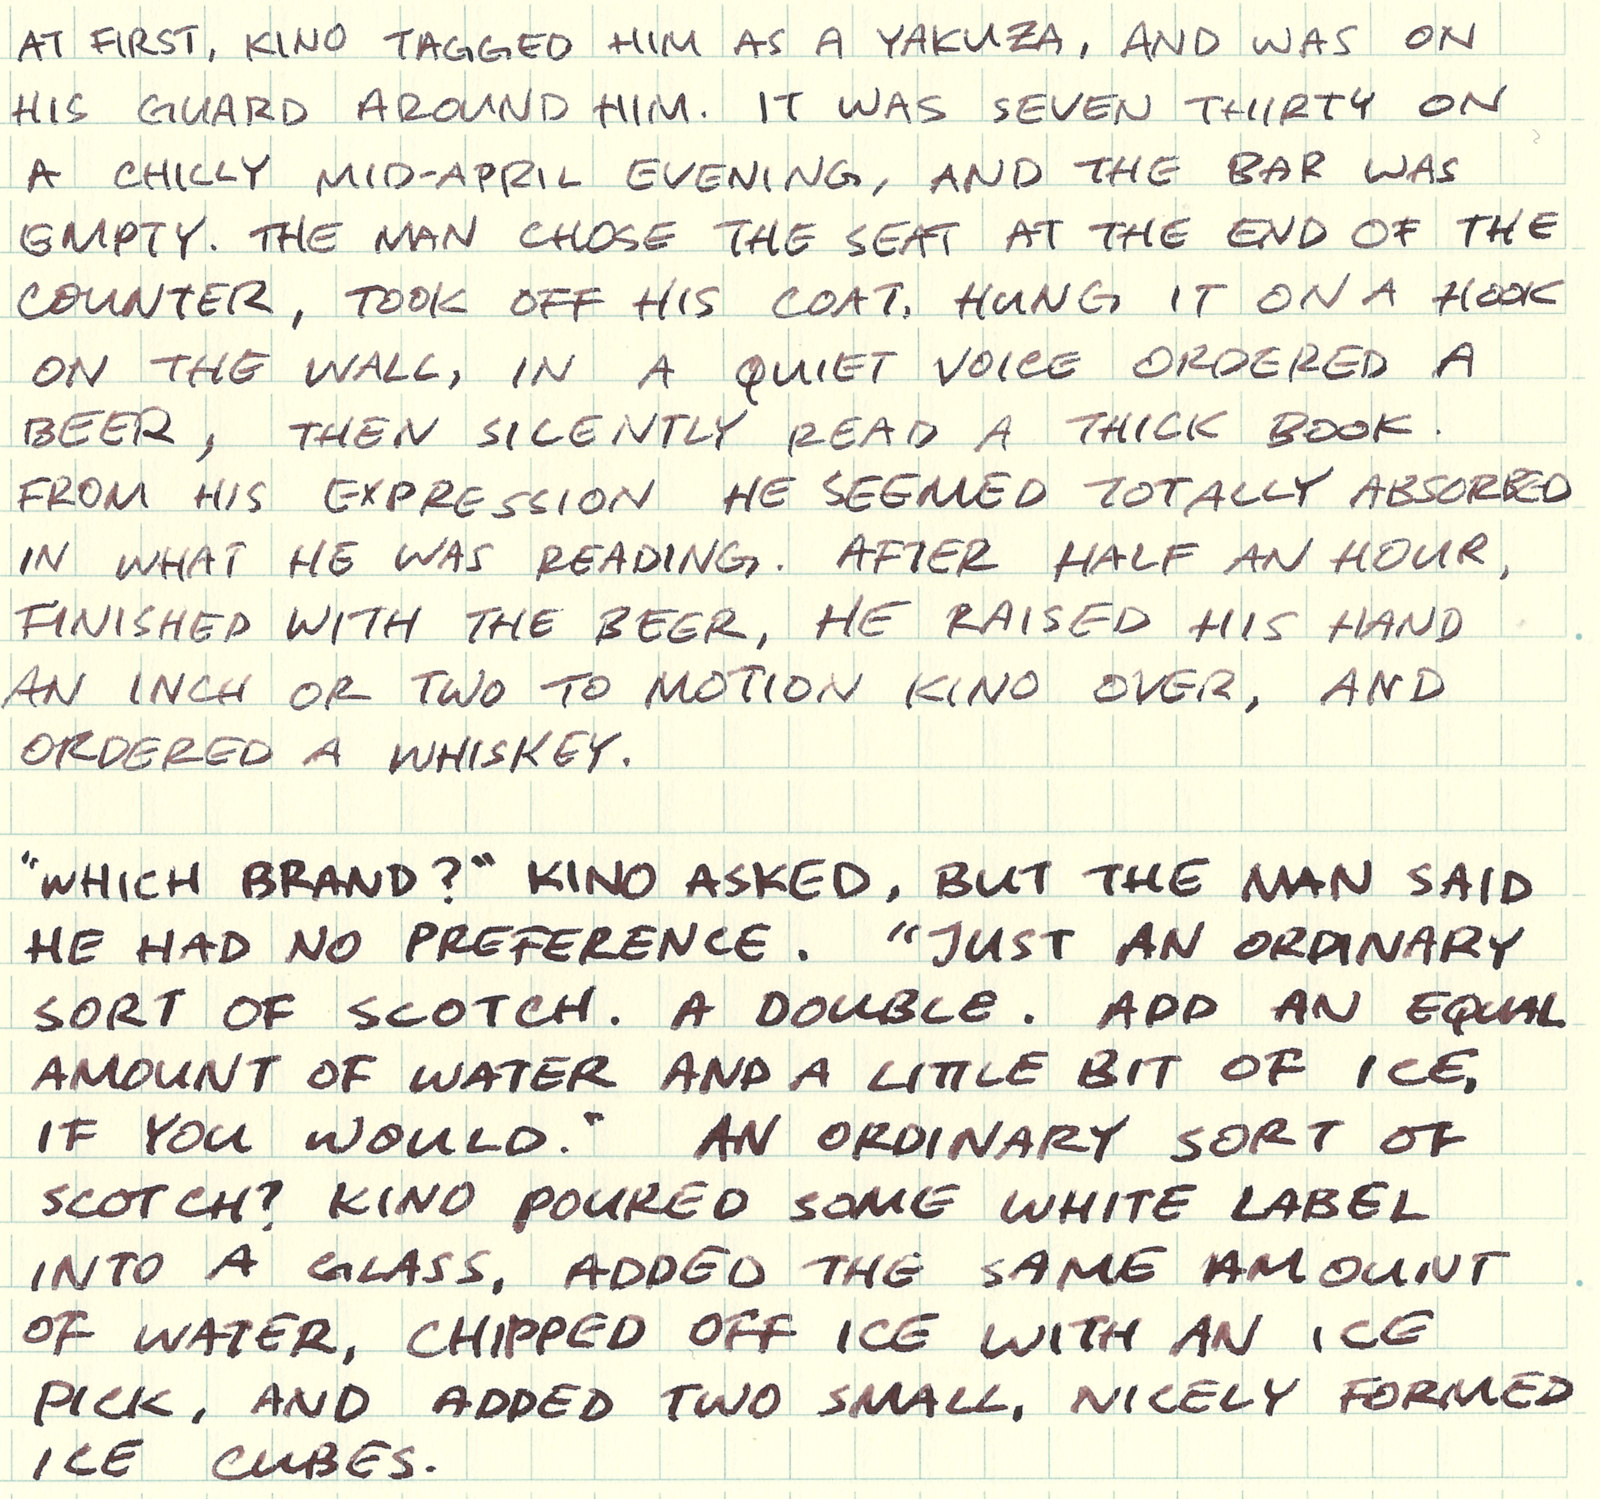 AT FIRST, KINO TAGGED HIM AS A YAKUZA, AND WAS ON
HIS GUARD AROUND HIM. IT WAS SEVEN THIRTY ON
A CHILLY MID-APRIL EVENING, AND THE BAR WAS
EMPTY. THE MAN CHOSE THE SEAT AT THE END OF THE
COUNTER, TOOK OFF HIS COAT, HUNG IT ON A HOOK
ON THE WALL, IN A QUIET VOICE ORDERED A
BEER, THEN SILENTLY READ A THICK BOOK.
FROM HIS EXPRESSION HE SEEMED TOTALLY ABSORBED
IN WHAT HE WAS READING. AFTER HALF AN HOUR,
FINISHED WITH THE BEER, HE RAISED HIS HAND
AN INCH OR TWO TO MOTION KINO OVER, AND
ORDERED A WHISKEY.
"WHICH BRAND?" KINO ASKED, BUT THE MAN SAID
HE HAD NO PREFERENCE. "JUST AN ORDINARY
SORT OF SCOTCH. A DOUBLE. ADD AN EQUAL
AMOUNT OF WATER AND A LITTLE BIT OF ICE,
IF YOU WOULD." AN ORDINARY SORT OF
SCOTCH? KINO POURED SOME WHITE LABEL
INTO A GLASS, ADDED THE SAME AMOUNT
OF WATER, CHIPPED OFF ICE WITH AN ICE
PICK, AND ADDED TWO SMALL, NICELY FORMED
ICE CUBES.